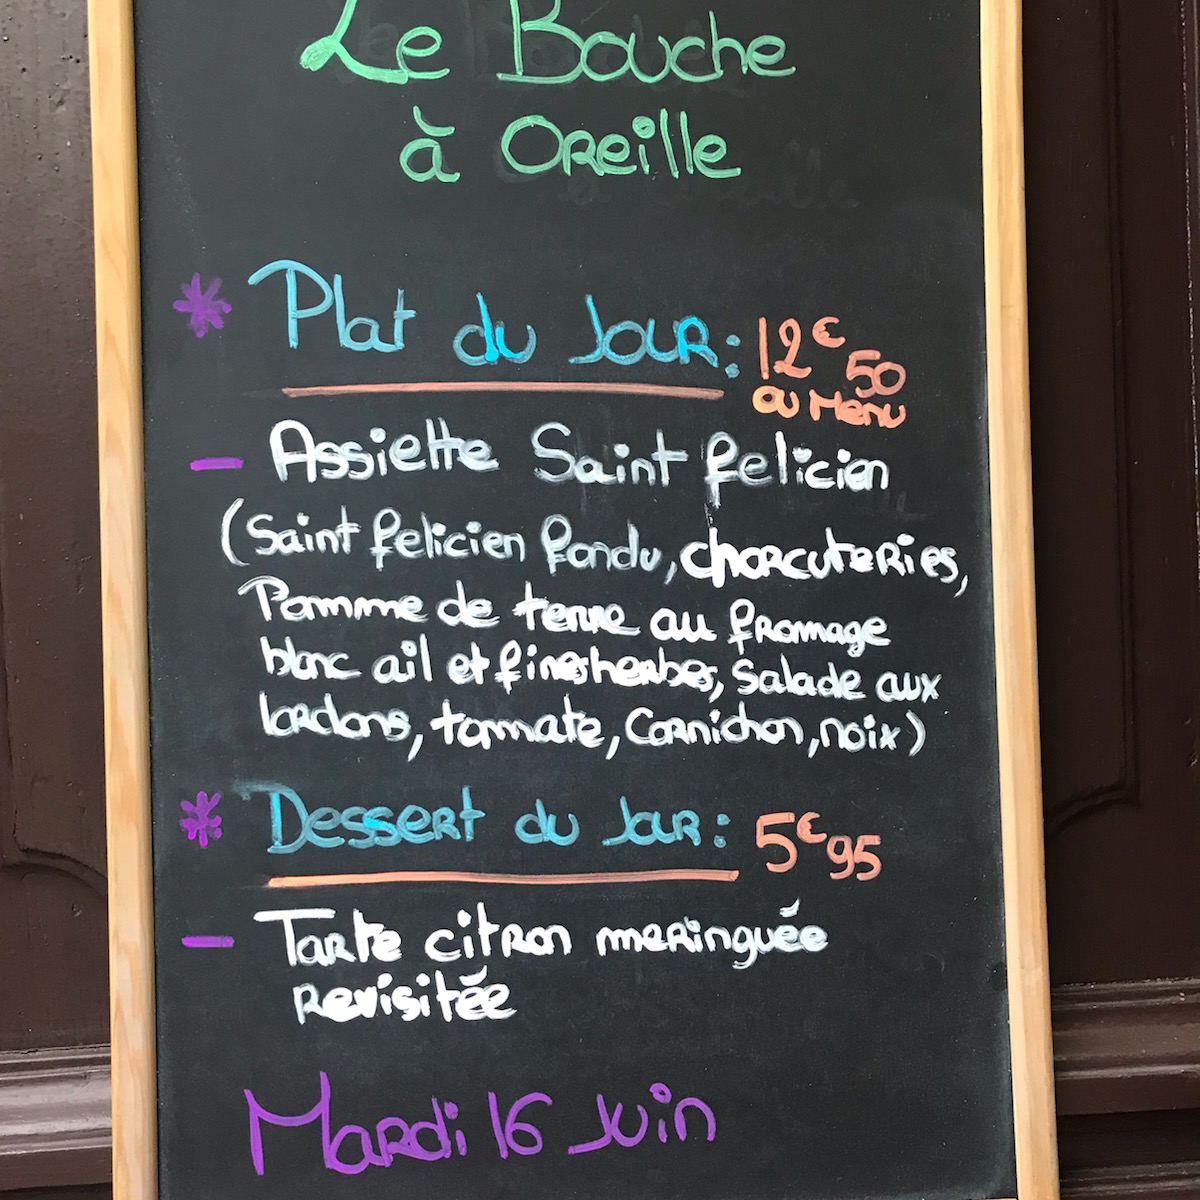 Le Bouche
à Oreille
* Plat du Jour : 12€50
ou Menu
- Assiette Saint felicien
(Saint felicien fondu, charcuteries,
Pomme de terre au fromage
blanc ail et fines herbes, Salade aux
lardons, tomate, Cornichon, noix)
* Dessert du Jour : 5€95
- Tarte citron meringuée
revisitée
Mardi 16 Juin